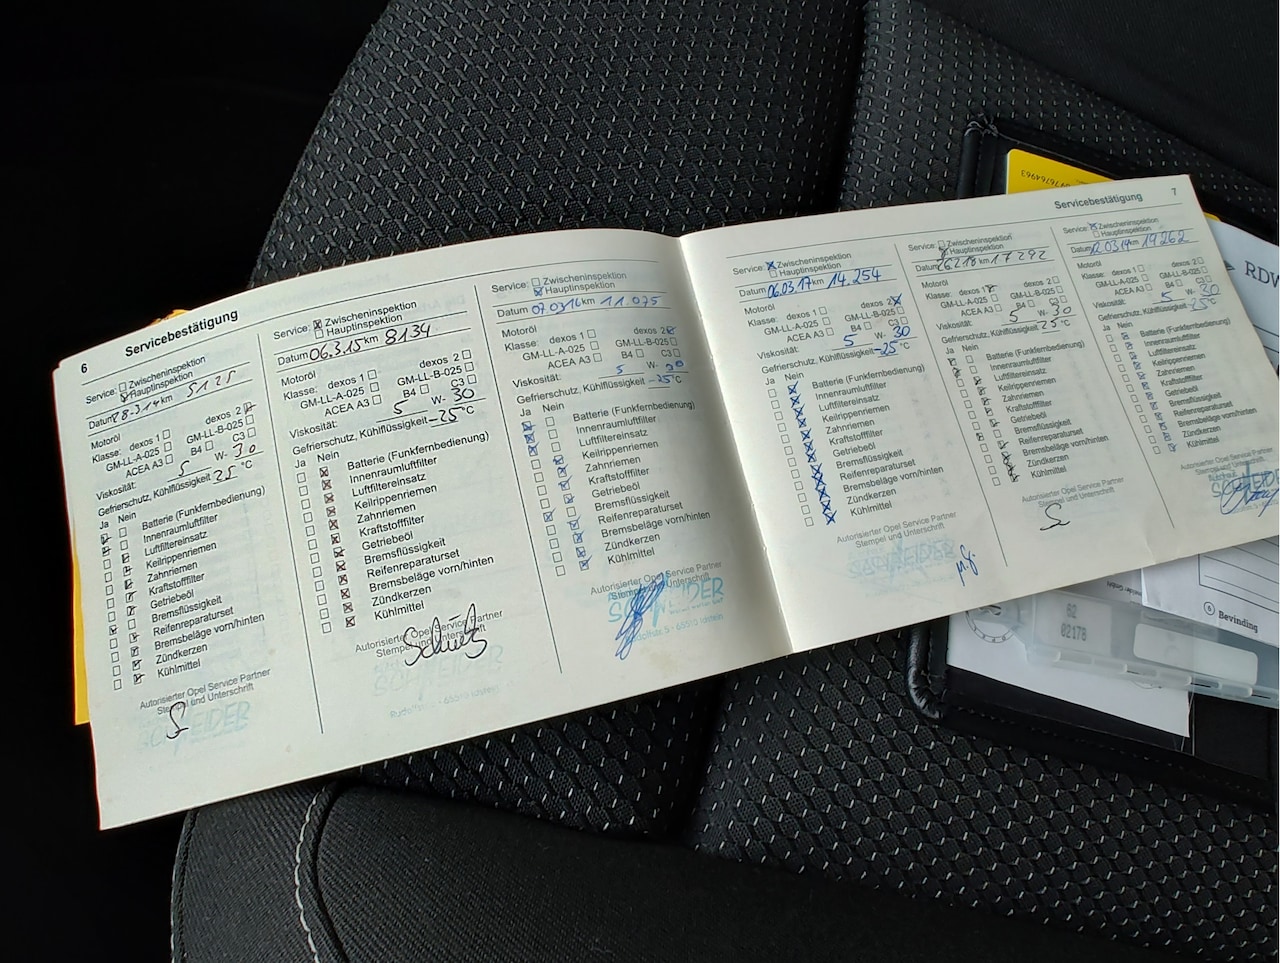 6
Servicebestätigung
Service: Zwischeninspektion
Hauptinspektion
Datum 28.3.14 km 5125
Motoröl
Klasse: dexos 1 dexos 2
GM-LL-A-025 GM-LL-B-025
ACEA A3 B4 C3
Viskosität: 5 W- 30
Gefrierschutz, Kühlflüssigkeit 25 °C
Ja Nein
Batterie (Funkfernbedienung)
Innenraumluftfilter
Luftfiltereinsatz
Keilrippenriemen
Zahnriemen
Kraftstofffilter
Getriebeöl
Bremsflüssigkeit
Reifenreparaturset
Bremsbeläge vorn/hinten
Zündkerzen
Kühlmittel
Autorisierter Opel Service Partner
Stempel und Unterschrift
Service: Zwischeninspektion
Hauptinspektion
Datum 06.3.15 km 8134
Motoröl
Klasse: dexos 1 dexos 2
GM-LL-A-025 GM-LL-B-025
ACEA A3 B4 C3
Viskosität: 5 W- 30
Gefrierschutz, Kühlflüssigkeit -25 °C
Ja Nein
Batterie (Funkfernbedienung)
Innenraumluftfilter
Luftfiltereinsatz
Keilrippenriemen
Zahnriemen
Kraftstofffilter
Getriebeöl
Bremsflüssigkeit
Reifenreparaturset
Bremsbeläge vorn/hinten
Zündkerzen
Kühlmittel
Autorisierter Opel Service Partner
Stempel und Unterschrift
Schulz
SCHNEIDER
Service: Zwischeninspektion
Hauptinspektion
Datum 07.03.16 km 11075
Motoröl
Klasse: dexos 1 dexos 2
GM-LL-A-025 GM-LL-B-025
ACEA A3 B4 C3
Viskosität: 5 W- 30
Gefrierschutz, Kühlflüssigkeit -25 °C
Ja Nein
Batterie (Funkfernbedienung)
Innenraumluftfilter
Luftfiltereinsatz
Keilrippenriemen
Zahnriemen
Kraftstofffilter
Getriebeöl
Bremsflüssigkeit
Reifenreparaturset
Bremsbeläge vorn/hinten
Zündkerzen
Kühlmittel
Autorisierter Opel Service Partner
Stempel und Unterschrift
SCHNEIDER
5 · 65510 Idstein
Servicebestätigung
7
Service: Zwischeninspektion
Hauptinspektion
Datum 06.03.17 km 14.254
Motoröl
Klasse: dexos 1 dexos 2
GM-LL-A-025 GM-LL-B-025
ACEA A3 B4 C3
Viskosität: 5 W- 30
Gefrierschutz, Kühlflüssigkeit -25 °C
Ja Nein
Batterie (Funkfernbedienung)
Innenraumluftfilter
Luftfiltereinsatz
Keilrippenriemen
Zahnriemen
Kraftstofffilter
Getriebeöl
Bremsflüssigkeit
Reifenreparaturset
Bremsbeläge vorn/hinten
Zündkerzen
Kühlmittel
Autorisierter Opel Service Partner
Stempel und Unterschrift
SCHNEIDER
Service: Zwischeninspektion
Hauptinspektion
Datum 26.2.18 km 17292
Motoröl
Klasse: dexos 1 dexos 2
GM-LL-A-025 GM-LL-B-025
ACEA A3 B4 C3
Viskosität: 5 W- 30
Gefrierschutz, Kühlflüssigkeit 25 °C
Ja Nein
Batterie (Funkfernbedienung)
Innenraumluftfilter
Luftfiltereinsatz
Keilrippenriemen
Zahnriemen
Kraftstofffilter
Getriebeöl
Bremsflüssigkeit
Reifenreparaturset
Bremsbeläge vorn/hinten
Zündkerzen
Kühlmittel
Autorisierter Opel Service Partner
Stempel und Unterschrift
Service: Zwischeninspektion
Hauptinspektion
Datum km 19262
Motoröl
Klasse: dexos 1 dexos 2
GM-LL-A-025 GM-LL-B-025
ACEA A3 B4 C3
Viskosität: 5 W- 30
Gefrierschutz, Kühlflüssigkeit 25 °C
Ja Nein
Batterie (Funkfernbedienung)
Innenraumluftfilter
Luftfiltereinsatz
Keilrippenriemen
Zahnriemen
Kraftstofffilter
Getriebeöl
Bremsflüssigkeit
Reifenreparaturset
Bremsbeläge vorn/hinten
Zündkerzen
Kühlmittel
Autorisierter Opel Service Partner
Stempel und Unterschrift
RDW
6 Bevinding
02178